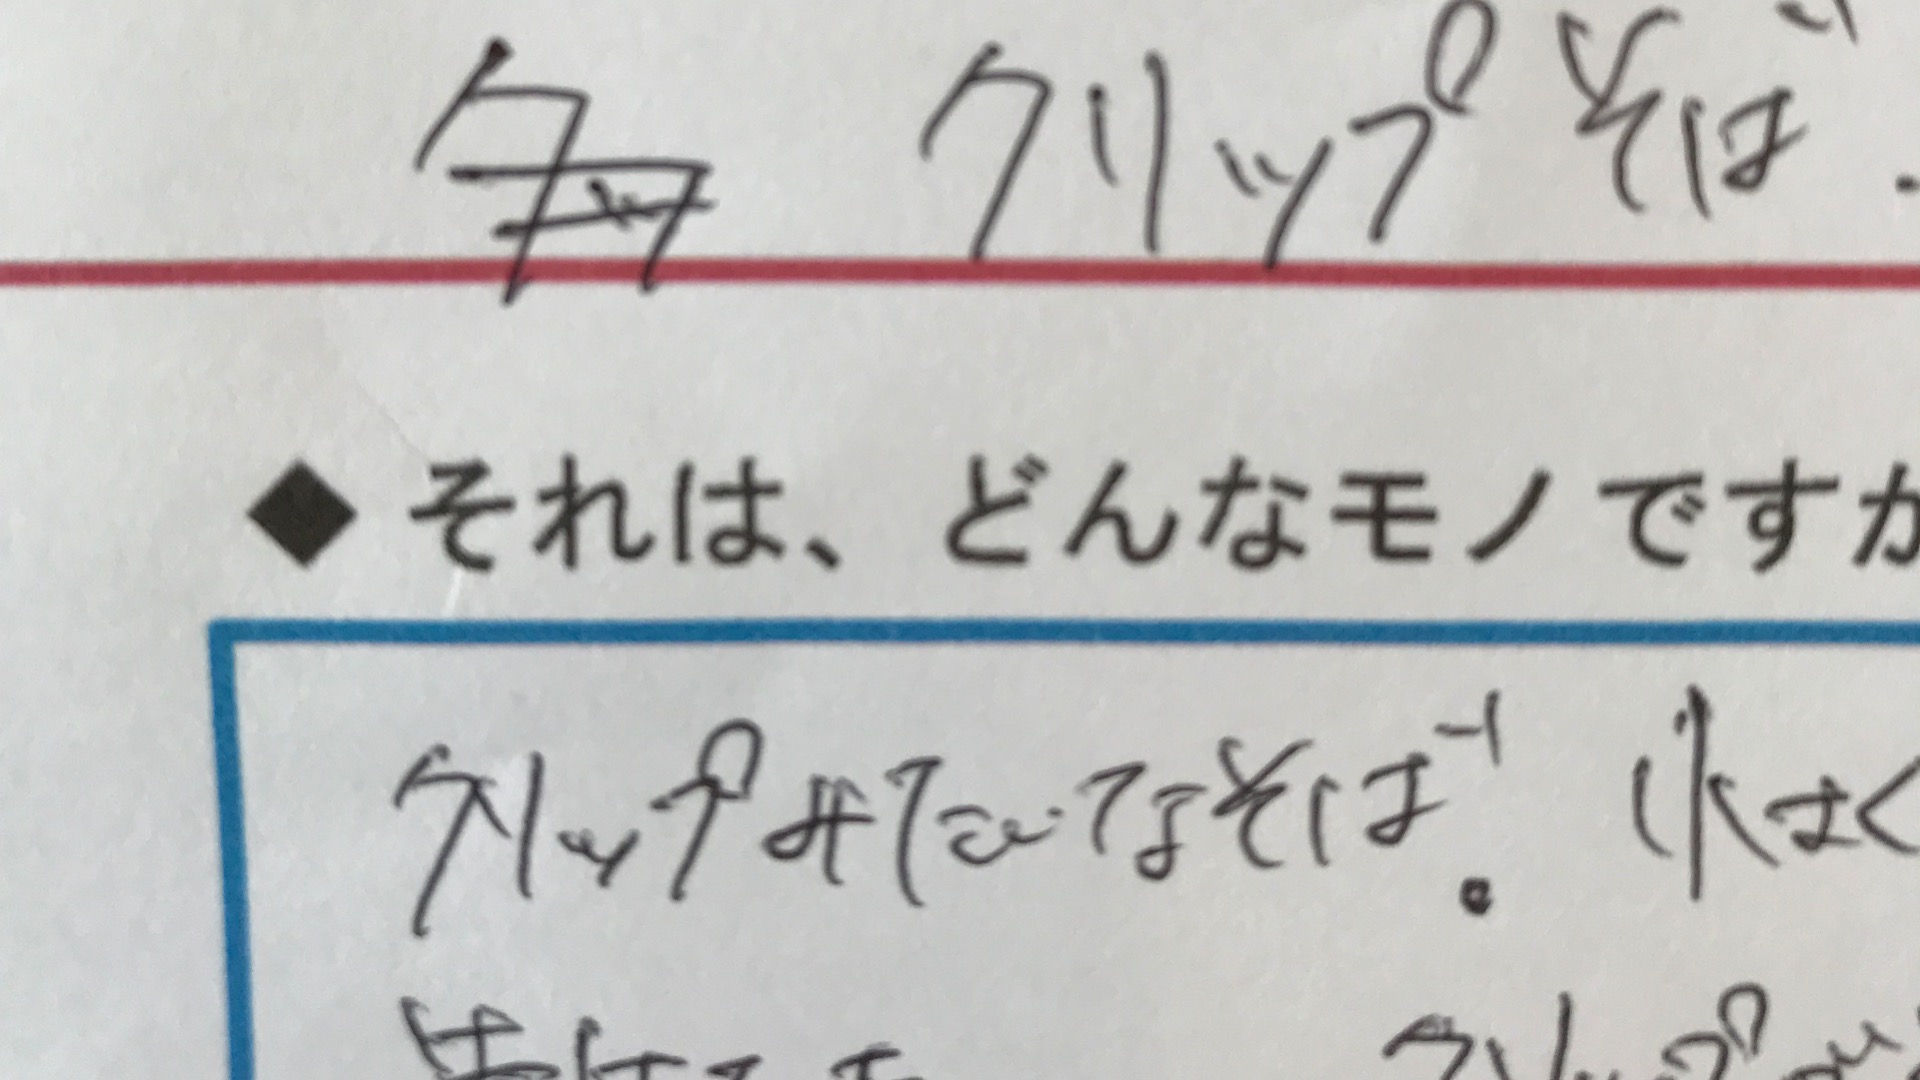 クリップそば.
◆それは、どんなモノですか
クリップみたいなそば. 小はく
クリップ